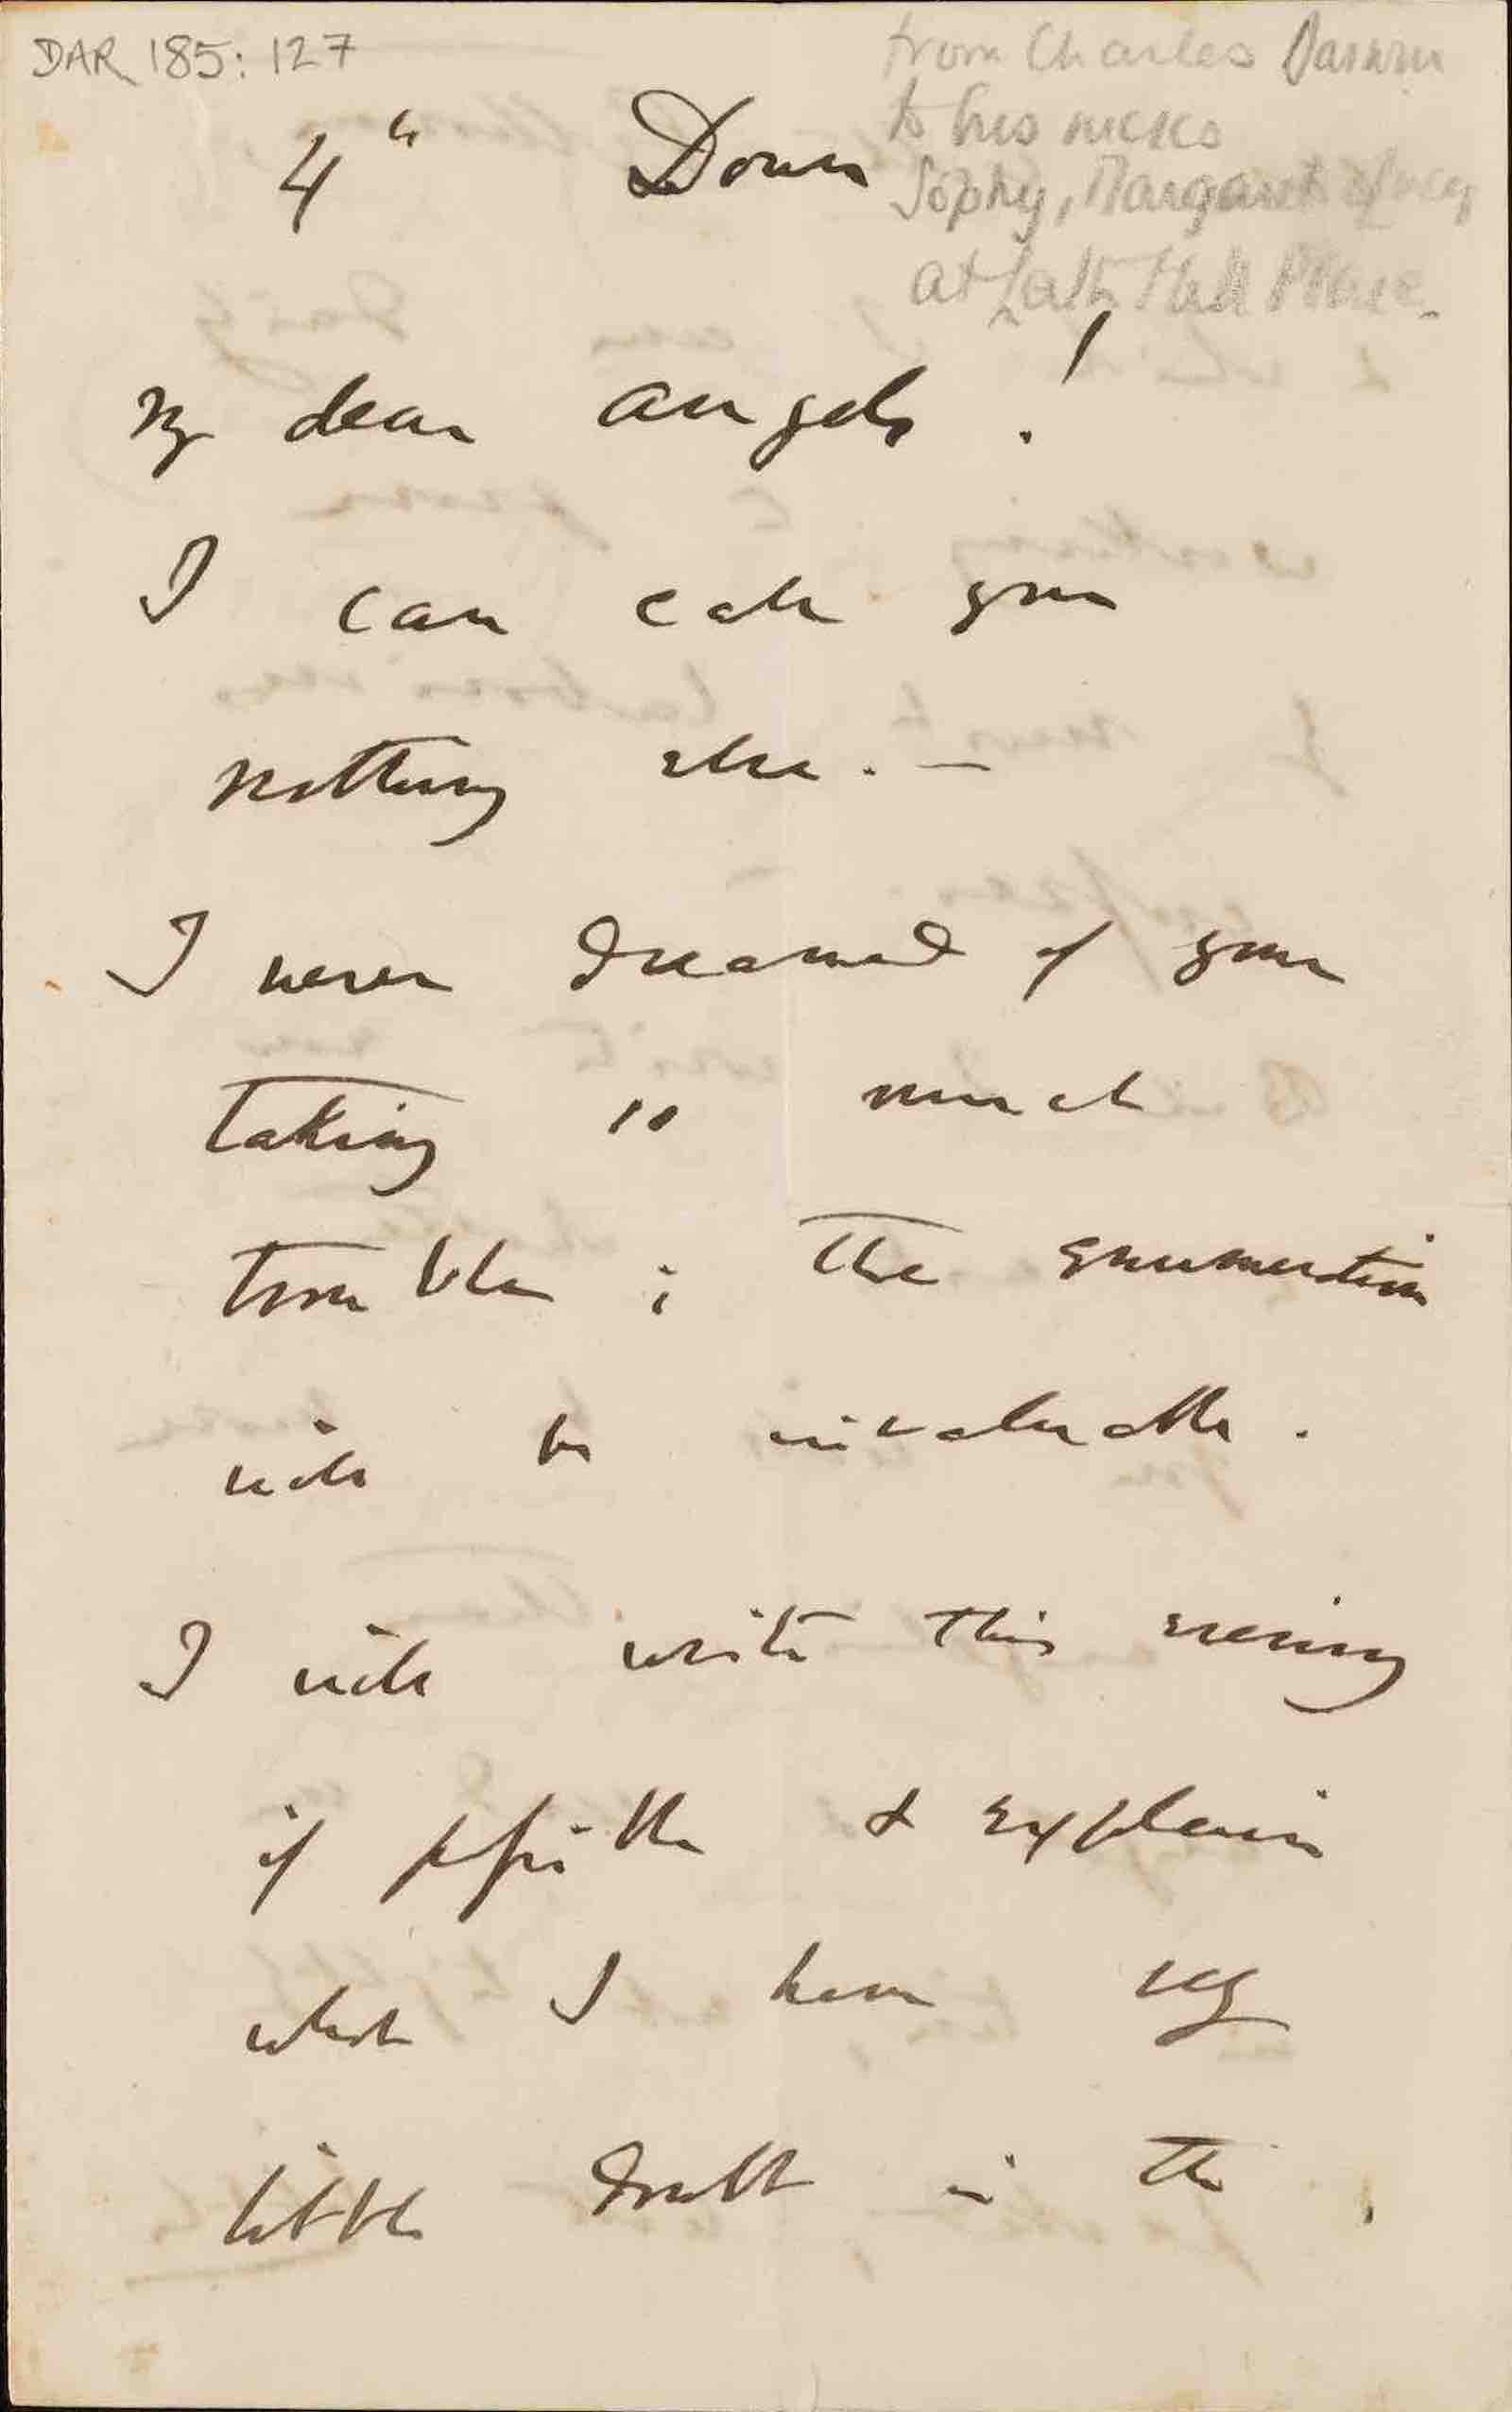 DAR 185: 127
from Charles Darwin
to his nieces
Sophy, Margaret & Lucy
at Leith Hill Place.
4th Down
My dear angels!
I can call you
nothing else. —
I never dreamed of your
taking so much
trouble; the enumeration
will be invaluable.
I will write this evening
if possible & explain
what I have very
little doubt is the